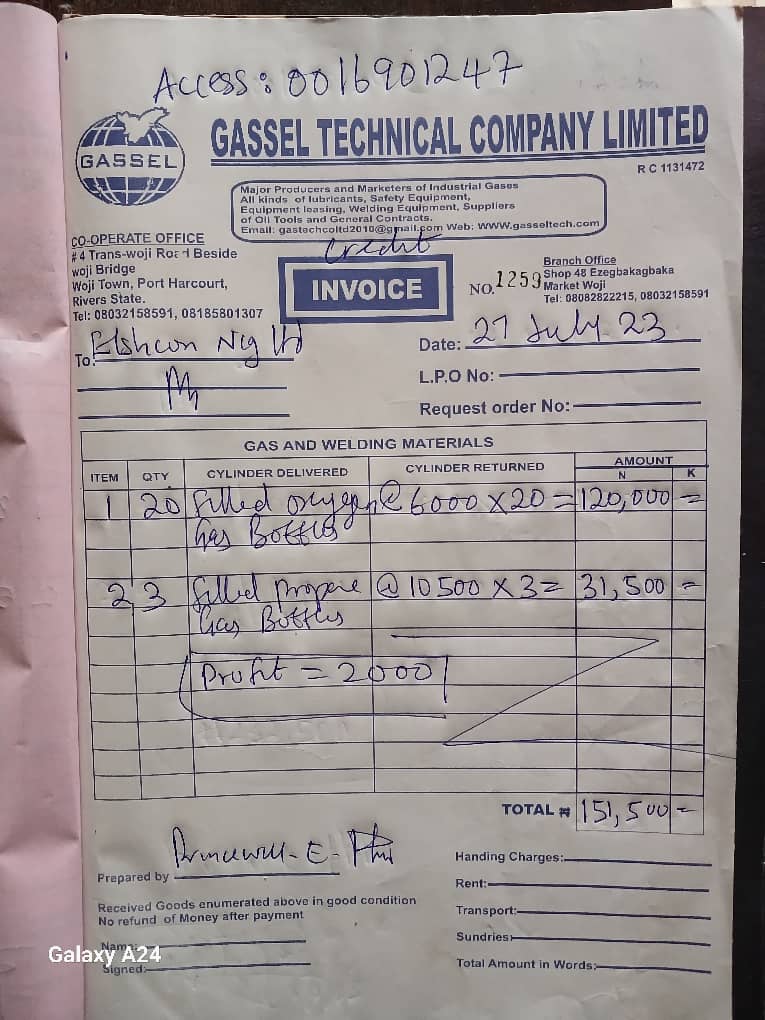 Access: 0016901247
GASSEL
GASSEL TECHNICAL COMPANY LIMITED
R C 1131472
Major Producers and Marketers of Industrial Gases
All kinds of lubricants, Safety Equipment,
Equipment leasing, Welding Equipment, Suppliers
of Oil Tools and General Contracts.
Email: gastechcoltd2010@gmail.com Web: WWW.gasseltech.com
CO-OPERATE OFFICE
#4 Trans-woji Road Beside
woji Bridge
Woji Town, Port Harcourt,
Rivers State.
Tel: 08032158591, 08185801307
Credit
INVOICE
NO. 1259
Branch Office
Shop 48 Ezegbakagbaka
Market Woji
Tel: 08082822215, 08032158591
To: Elshcon Nig ltd
Date: 27 July 23
L.P.O No:
Request order No:
GAS AND WELDING MATERIALS
ITEM QTY CYLINDER DELIVERED CYLINDER RETURNED AMOUNT
N K
1 20 filled oxygen @ 6000 x 20 = 120,000 =
Gas Bottles
2 3 filled propane @ 10500 x 3 = 31,500 =
Gas Bottles
Profit = 2000
TOTAL ₦ 151,500 =
Prepared by Princewill - E -
Received Goods enumerated above in good condition
No refund of Money after payment
Name:
Signed:
Handing Charges:
Rent:
Transport:
Sundries:
Total Amount in Words:
Galaxy A24